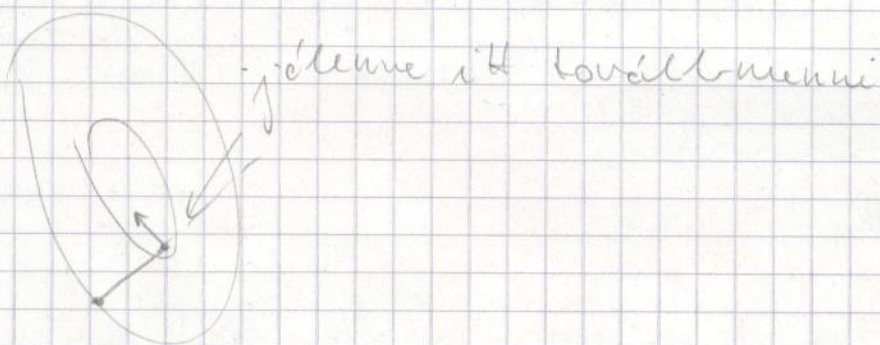 jó lenne itt továbbmenni